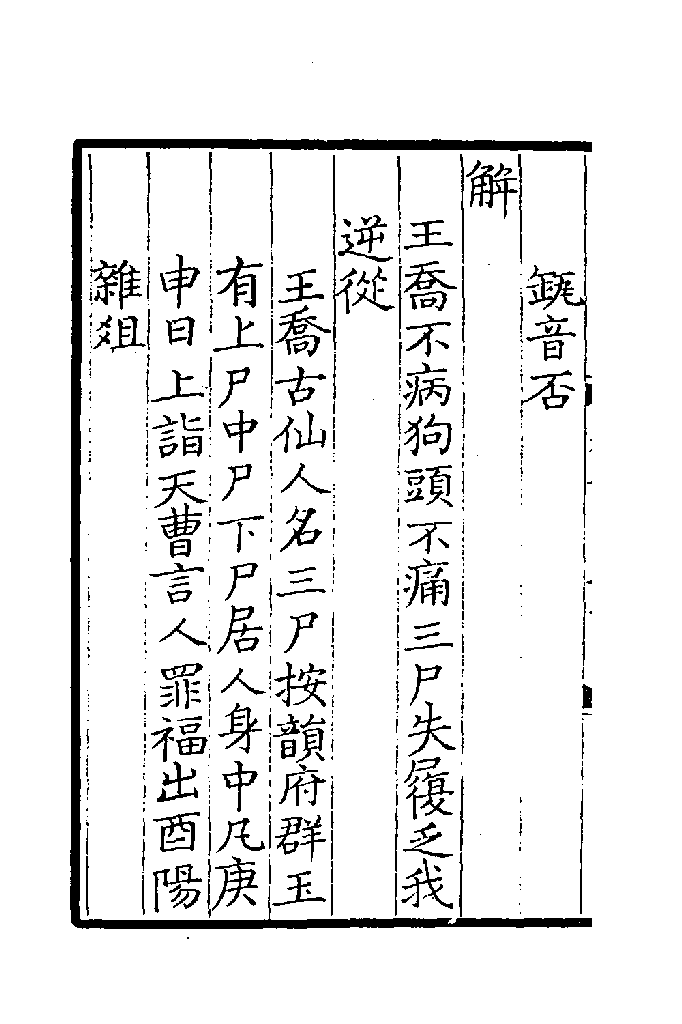 音否
解
王喬不病狗頭不痛三尸失履乏我
逆從
王喬古仙人名三尸按韻府群玉
有上尸中尸下尸居人身中凡庚
申日上詣天曹言人罪福出酉陽
雜俎